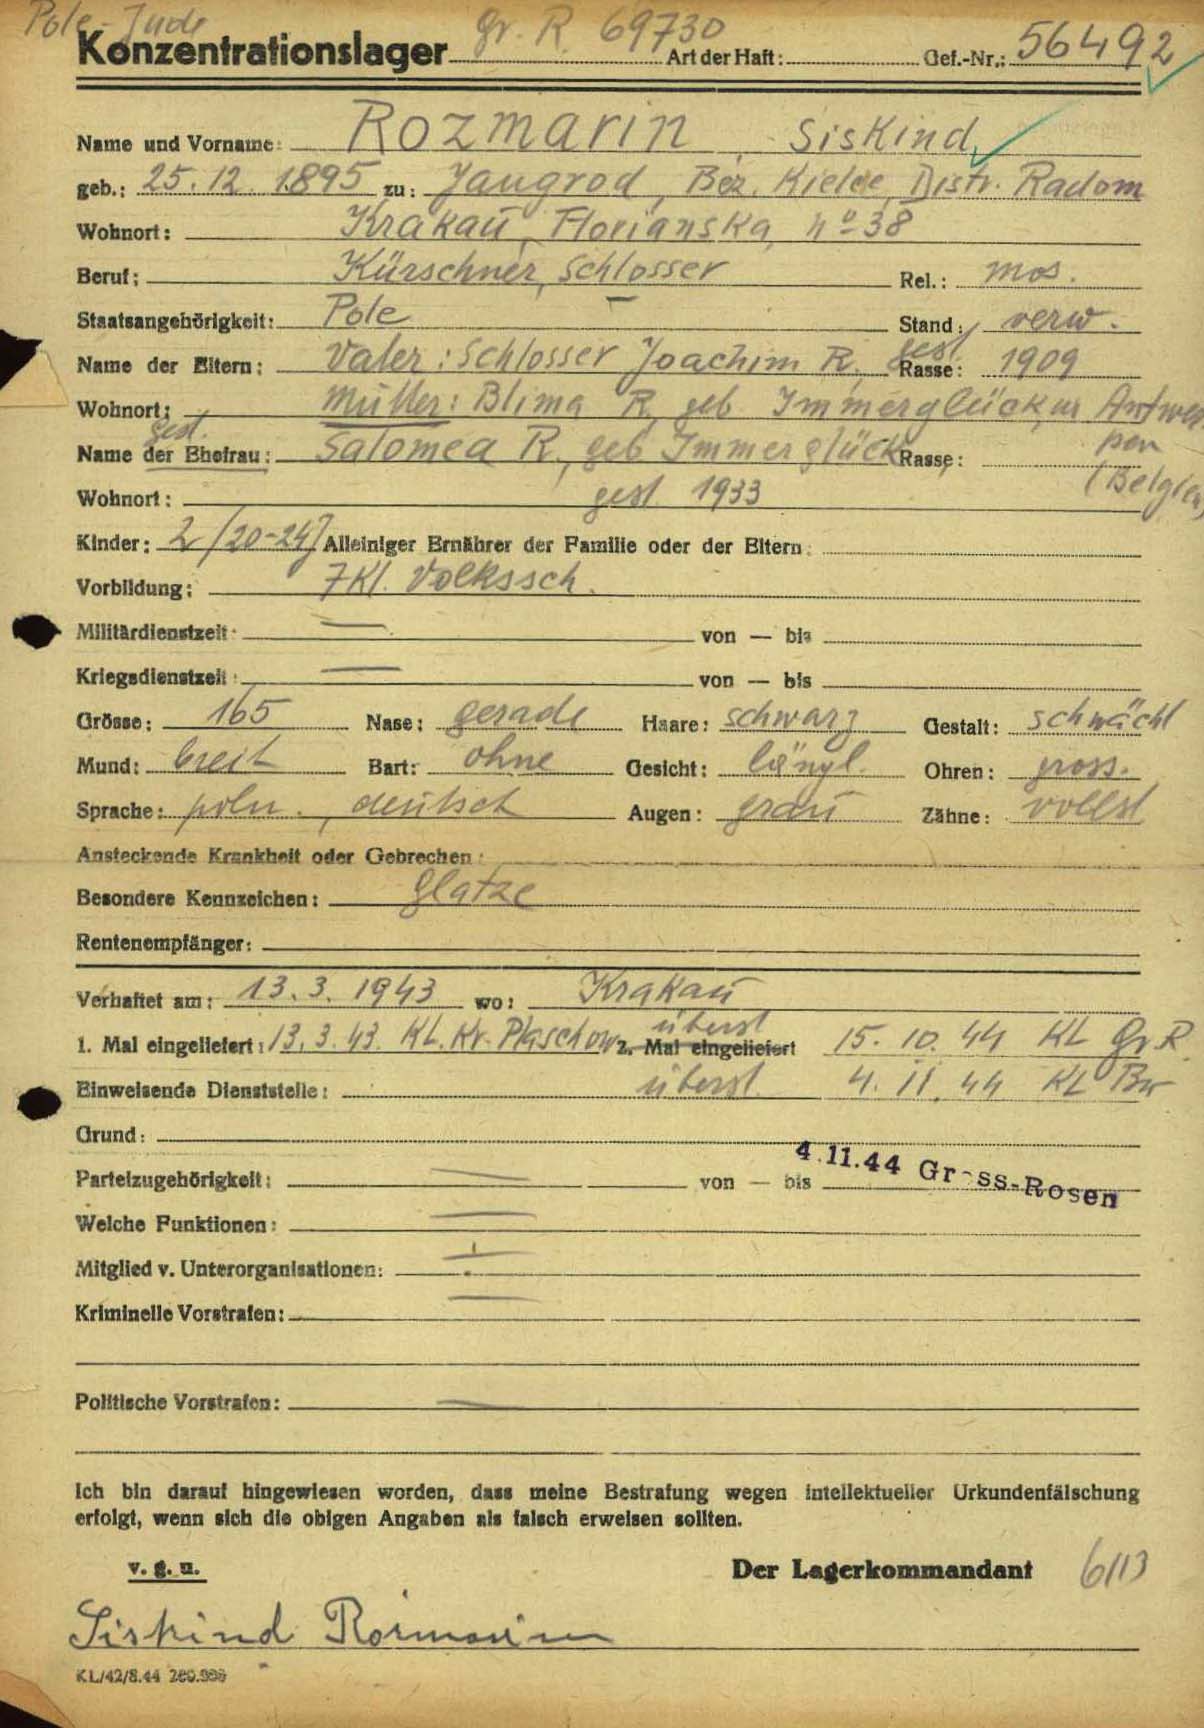 Pole-Jude
Konzentrationslager Gr. R. 69730 Art der Haft: Gef.-Nr.: 56492
Name und Vorname: Rozmarin Siskind
geb.: 25. 12. 1895 zu: Jangrod, Bez. Kielce, Distr. Radom
Wohnort: Krakau, Florianska, No 38
Beruf: Kürschner, Schlosser Rel.: mos.
Staatsangehörigkeit: Pole Stand: verw.
Name der Eltern: Vater: Schlosser Joachim R. gest. Rasse: 1909
Wohnort: Mutter: Blima R. geb. Immerglück, in Antwer
pen
gest.
Name der Ehefrau: Salomea R., geb Immerglück Rasse:
(Belgien)
Wohnort: gest. 1933
Kinder: 2 (20-24) Alleiniger Ernährer der Familie oder der Eltern:
Vorbildung: 7 Kl. Volkssch.
Militärdienstzeit: — von — bis
Kriegsdienstzeit: — von — bis
Grösse: 165 Nase: gerade Haare: schwarz Gestalt: schwächl
Mund: breit Bart: ohne Gesicht: längl. Ohren: gross.
Sprache: poln., deutsch Augen: grau Zähne: vollst
Ansteckende Krankheit oder Gebrechen:
Besondere Kennzeichen: Glatze
Rentenempfänger:
Verhaftet am: 13. 3. 1943 wo: Krakau
überst
1. Mal eingeliefert: 13. 3. 43. KL. Kr. Plaschow 2. Mal eingeliefert 15. 10. 44 KL Gr. R.
Einweisende Dienststelle: überst. 4. 11. 44 KL Bw
Grund:
4.11.44 Gross-Rosen
Parteizugehörigkeit: — von — bis
Welche Funktionen: —
Mitglied v. Unterorganisationen: —
Kriminelle Vorstrafen: —
Politische Vorstrafen: —
Ich bin darauf hingewiesen worden, dass meine Bestrafung wegen intellektueller Urkundenfälschung
erfolgt, wenn sich die obigen Angaben als falsch erweisen sollten.
v. g. u. Der Lagerkommandant 6/13
Siskind Rozmarin
KL/42/8.44